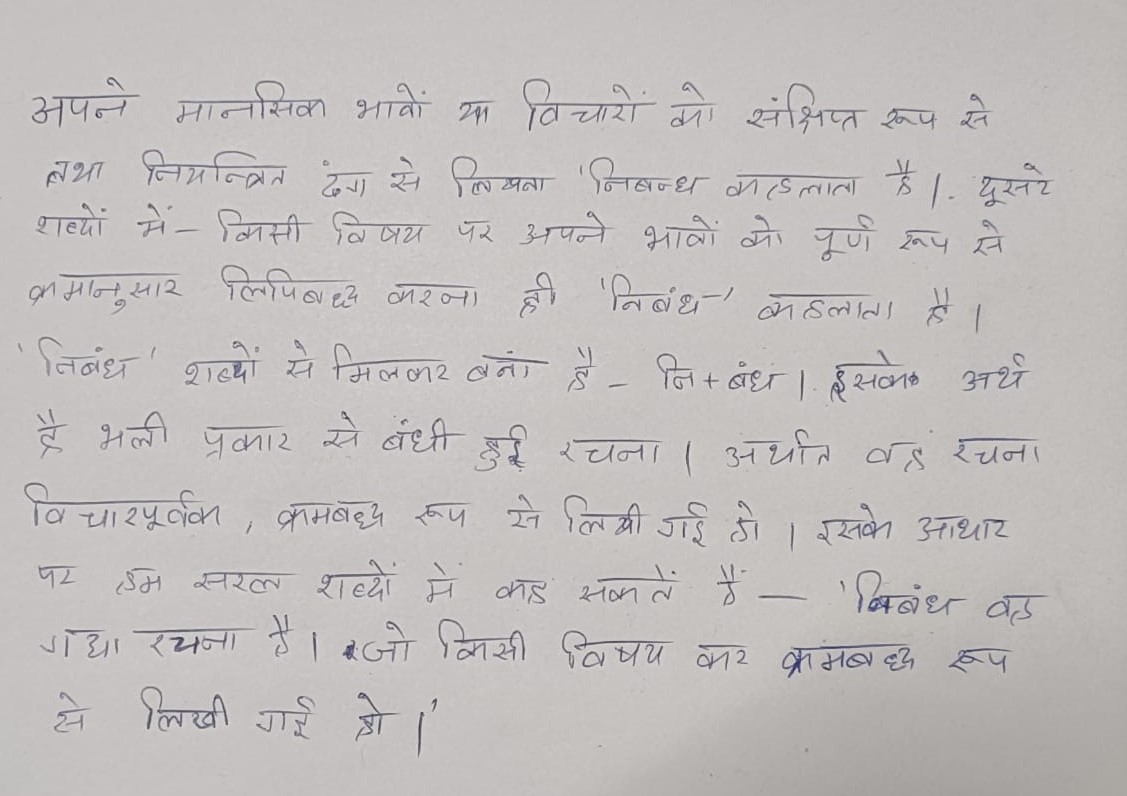 अपने मानसिक भावों या विचारों को संक्षिप्त रूप से
तथा नियन्त्रित ढंग से लिखना 'निबन्ध कहलाता है।. दूसरे
शब्दों में – किसी विषय पर अपने भावों को पूर्ण रूप से
क्रमानुसार लिपिबध्द करना ही 'निबंध' कहलाता है।
'निबंध' शब्दों से मिलकर बनां है – नि + बंध।. इसके अर्थ
है भली प्रकार से बंधी हुई रचना। अर्थात वह रचना
विचारपूर्वक, क्रमबध्द रूप से लिखी गई हो। इसके आधार
पर हम सरल शब्दों में कह सकतें हैं – 'निबंध वह
गद्य रचना है। जो किसी विषय कर क्रमबध्द रूप
से लिखी गई हो।'